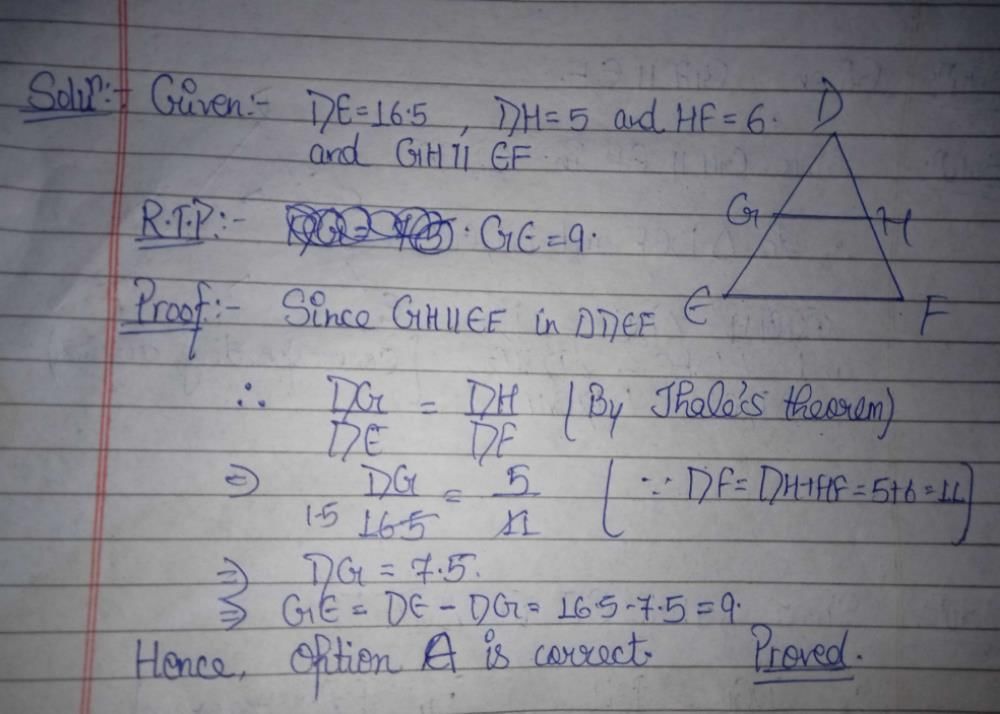 Solun:- Given:- DE=16.5 , DH=5 and HF=6.
and GH || EF
D
G H
R.T.P:- GE=9.
E F
Proof:- Since GH||EF in ΔDEF
∴ DG/DE = DH/DF (By Thale's theorem)
⇒ DG/16.5 = 5/11 (∵ DF=DH+HF=5+6=11)
1.5
⇒ DG = 7.5.
⇒ GE = DE - DG = 16.5-7.5 = 9.
Hence, option A is correct. Proved.